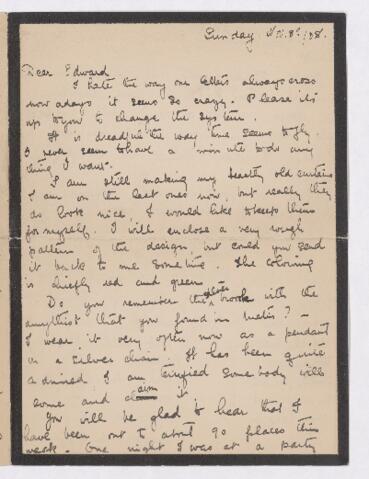 Sunday Nov. 8th /08.
Dear Edward
I hate the way our letters always cross
now adays it seems so crazy. Please its
up to you to change the system.
It is dreadful the way time seems to fly.
I never seem to have a minute to do any
thing I want.
I am still making my beastly old curtains
I am on the last ones now, but really they
do look nice. I would like to keep them
for myself. I will enclose a very rough
pattern of the design, but could you send
it back to me sometime. The coloring
is chiefly red and green.
Do you remember the silver brook with the
amythist that you found in ? -
I wear it very often now as a pendant
on a silver chain. It has been quite
admired. I am terrified somebody will
come and claim it
You will be glad to hear that I
have been out to about 90 places this
week. One night I was at a party